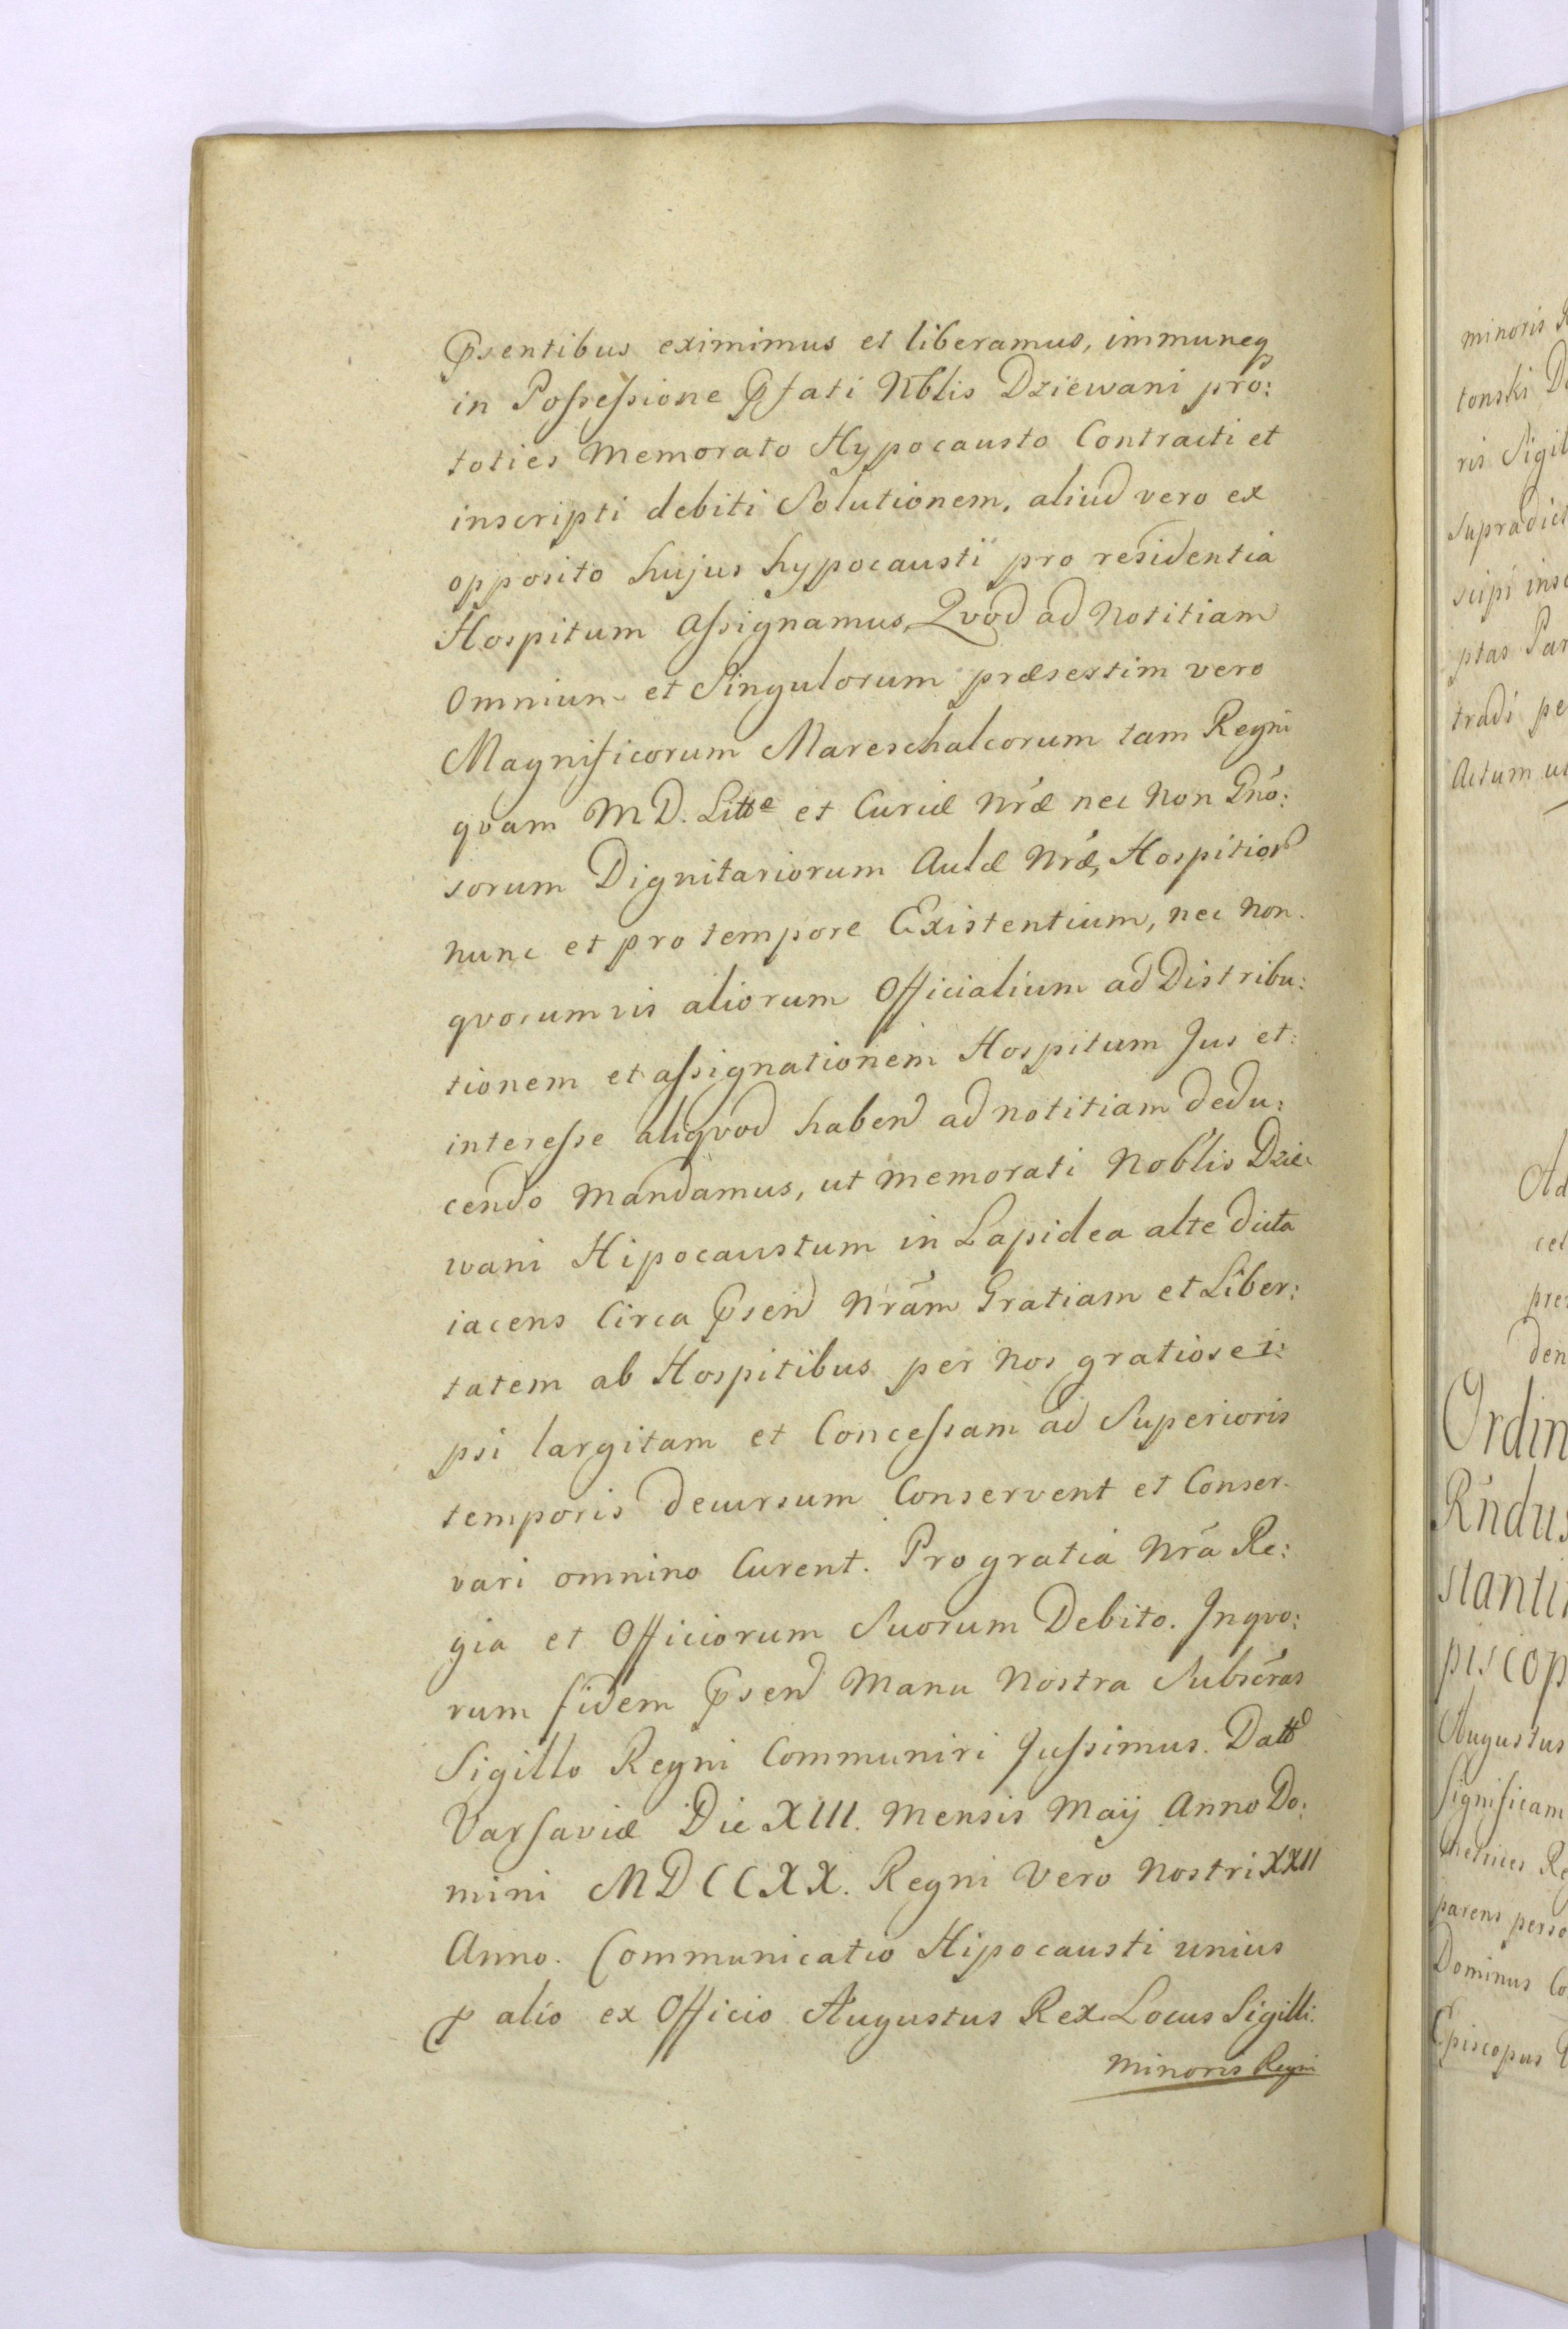 Psentibus eximimus et liberamus, immuneq
in Possessione Pfati Nblis Dziewani pro:
toties Memorato Hypocausto Contracti et
inscripti debiti Solutionem, aliud vero ex
opposito hujus hypocausti pro residentia
Hospitum Assignamus, Qvod ad Notitiam
Omnium et Singulorum præsertim vero
Magnificorum Mareschalcorum tam Regni
qvam M D. Litte et Curiæ Nræ nec Non Gnó:
sorum Dignitariorum Aulæ Nræ, Hospitior
nunc et pro tempore Existentium, nec Non
qvorumvis aliorum Officialium ad Distribu:
tionem et assignationem Hospitum Jus et:
interesse aliqvod haben ad notitiam dedu:
cendo Mandamus, ut memorati Noblis Dzie:
wani Hipocaustum in Lapidea alte dicta
iacens Circa Psen Nrám Gratiam et Liber:
tatem ab Hospitibus per Nos gratiose i:
psi largitam et Concessam ad Superioris
temporis decursum Conservent et Conser-
vari omnino Curent. Pro gratia Nrá Re:
gia et Officiorum Suorum Debito. Inqvo:
rum fidem Psen Manu Nostra Subscras
Sigillo Regni Communiri Jussimus. Datt
Varsaviæ Die XIII. Mensis Maÿ Anno Do:
mini MDCCXX. Regni Vero Nostri XXII
Anno. Communicatio Hipocausti unius
P alio ex Officio Augustus Rex Locus Sigilli.
Minoris Regni
minoris
tonski
ris Sigil
Supradict
scipi insc
ptas Par
tradi pe
Actum ut
Ad
cel
pre
den
Ordin
Rńdus
stanti
piscop
Augustus
Significam
parens perso
Dominus Co
Episcopus